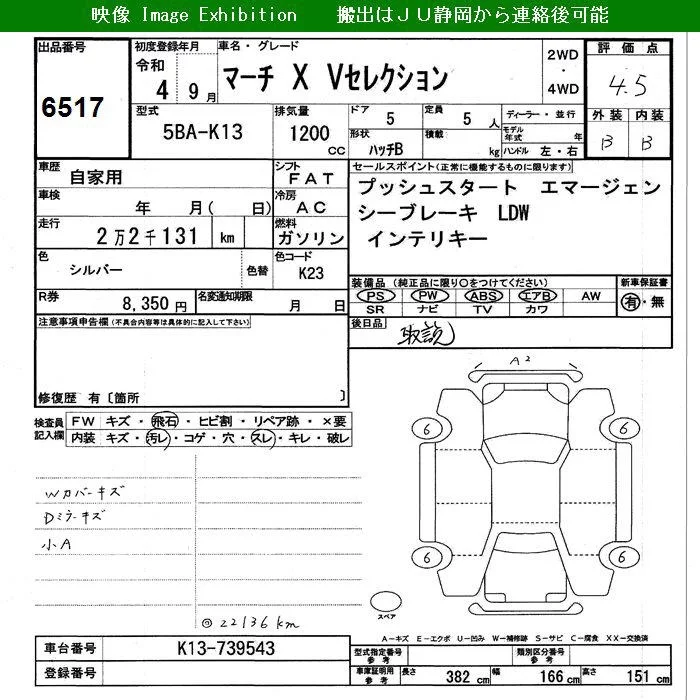 映像 Image Exhibition 搬出はＪＵ静岡から連絡後可能
出品番号 6517
初度登録年月 令和 4 9月
車名・グレード マーチ X Vセレクション
2WD・4WD
評価点 4.5
型式 5BA-K13
排気量 1200 CC
ドア 5
定員 5人
形状 ハッチB
積載 kg
ディーラー・並行
モデル年式 年
ハンドル 左・右
外装 B
内装 B
車歴 自家用
シフト FAT
車検 年 月( 日)
冷房 AC
走行 2万2千131 km
燃料 ガソリン
色 シルバー 色替
色コード K23
R券 8,350円
名変通知期限 月 日
セールスポイント(正常に機能するものに限ります)
プッシュスタート エマージェン
シーブレーキ LDW
インテリキー
装備品(純正品に限り○をつけてください)
PS PW ABS エアB AW
SR ナビ TV カワ
新車保証書 有・無
後日品 取説
注意事項申告欄(不具合内容等は具体的に記入して下さい)
修復歴 有〔箇所 〕
検査員記入欄
FW キズ・飛石・ヒビ割・リペア跡・×要
内装 キズ・汚レ・コゲ・穴・スレ・キレ・破レ
Wカバーキズ
Dミラーキズ
小A
◎22136km
A2
6
6
6
6
スペア
A－キズ E－エクボ U－凹み W－補修跡 S－サビ C－腐食 XX－交換済
車台番号 K13-739543
登録番号
型式指定番号 参考
類別区分番号 参考
車庫証明用 参考 長さ 382 cm 幅 166 cm 高さ 151 cm